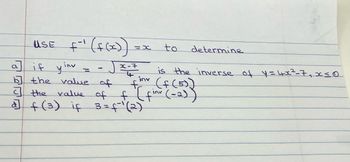 USE f⁻¹(f(x)) = x to determine
a] if yⁱⁿᵛ = -√((x-7)/4) is the inverse of y = 4x²-7, x≤0
b] the value of fⁱⁿᵛ(f(5))
c] the value of f(fⁱⁿᵛ(-2))
d] f(3) if 3 = f⁻¹(2)